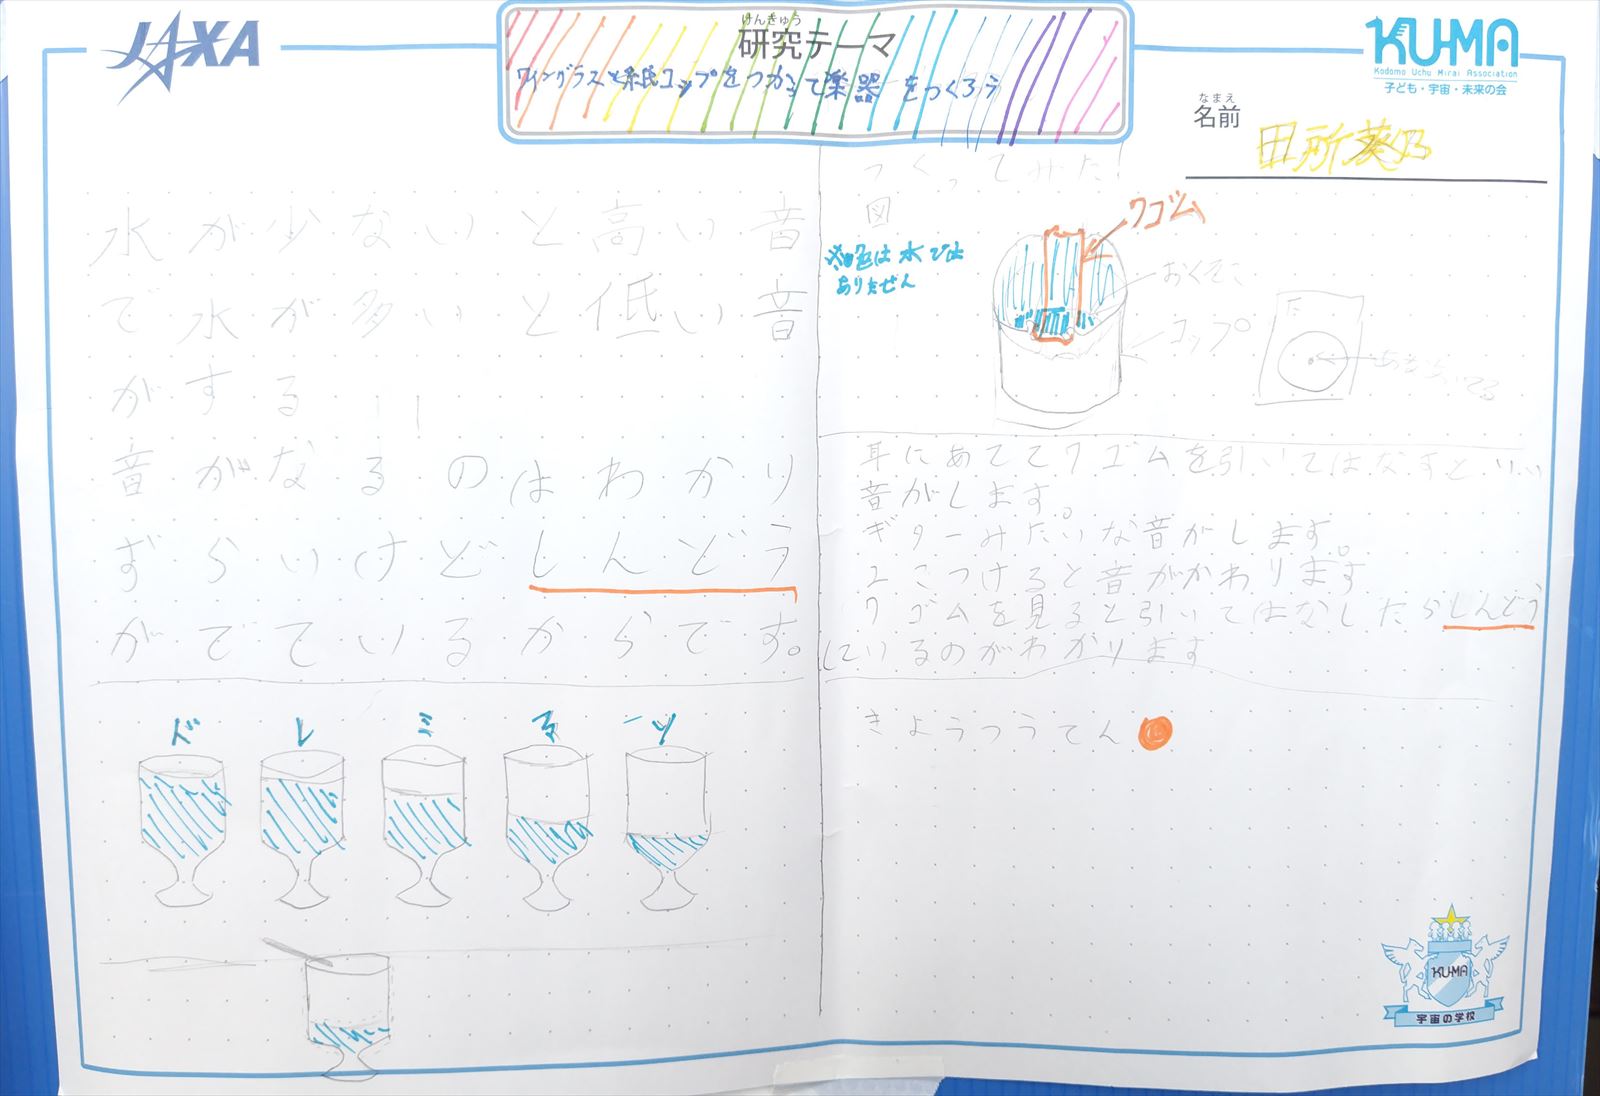 JAXA
けんきゅう
研究テーマ
ワイングラスと紙コップをつかって楽器をつくろう
KU-MA
Kodomo Uchu Mirai Association
子ども・宇宙・未来の会
なまえ
名前
水が少ないと高い音
で水が多いと低い音
がする!!
音がなるのはわかり
ずらいけどしんどう
がでているからです。
ド レ ミ ファ ソ
つくってみた!
図
色は水では
ありません
ワゴム
コップ
耳にあててワゴムを引いてはなすといい
音がします。
ギターみたいな音がします。
2こつけると音がかわります。
ワゴムを見ると引いてはなしたらしんどう
しているのがわかります
きょうつうてん
KU-MA
宇宙の学校